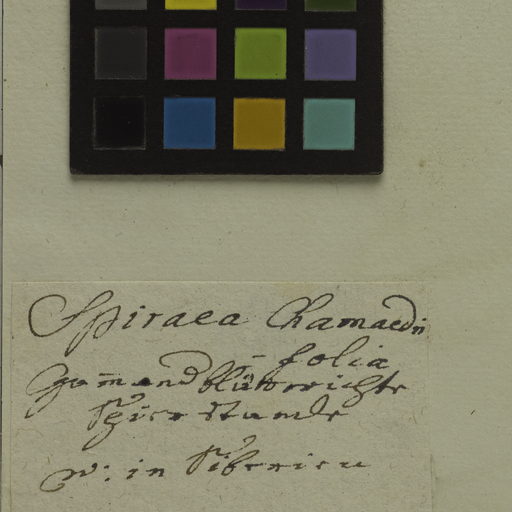 Spiraea Chamaedri
-folia
Gamandblättrichte
Spierstaude
w: in Siberien